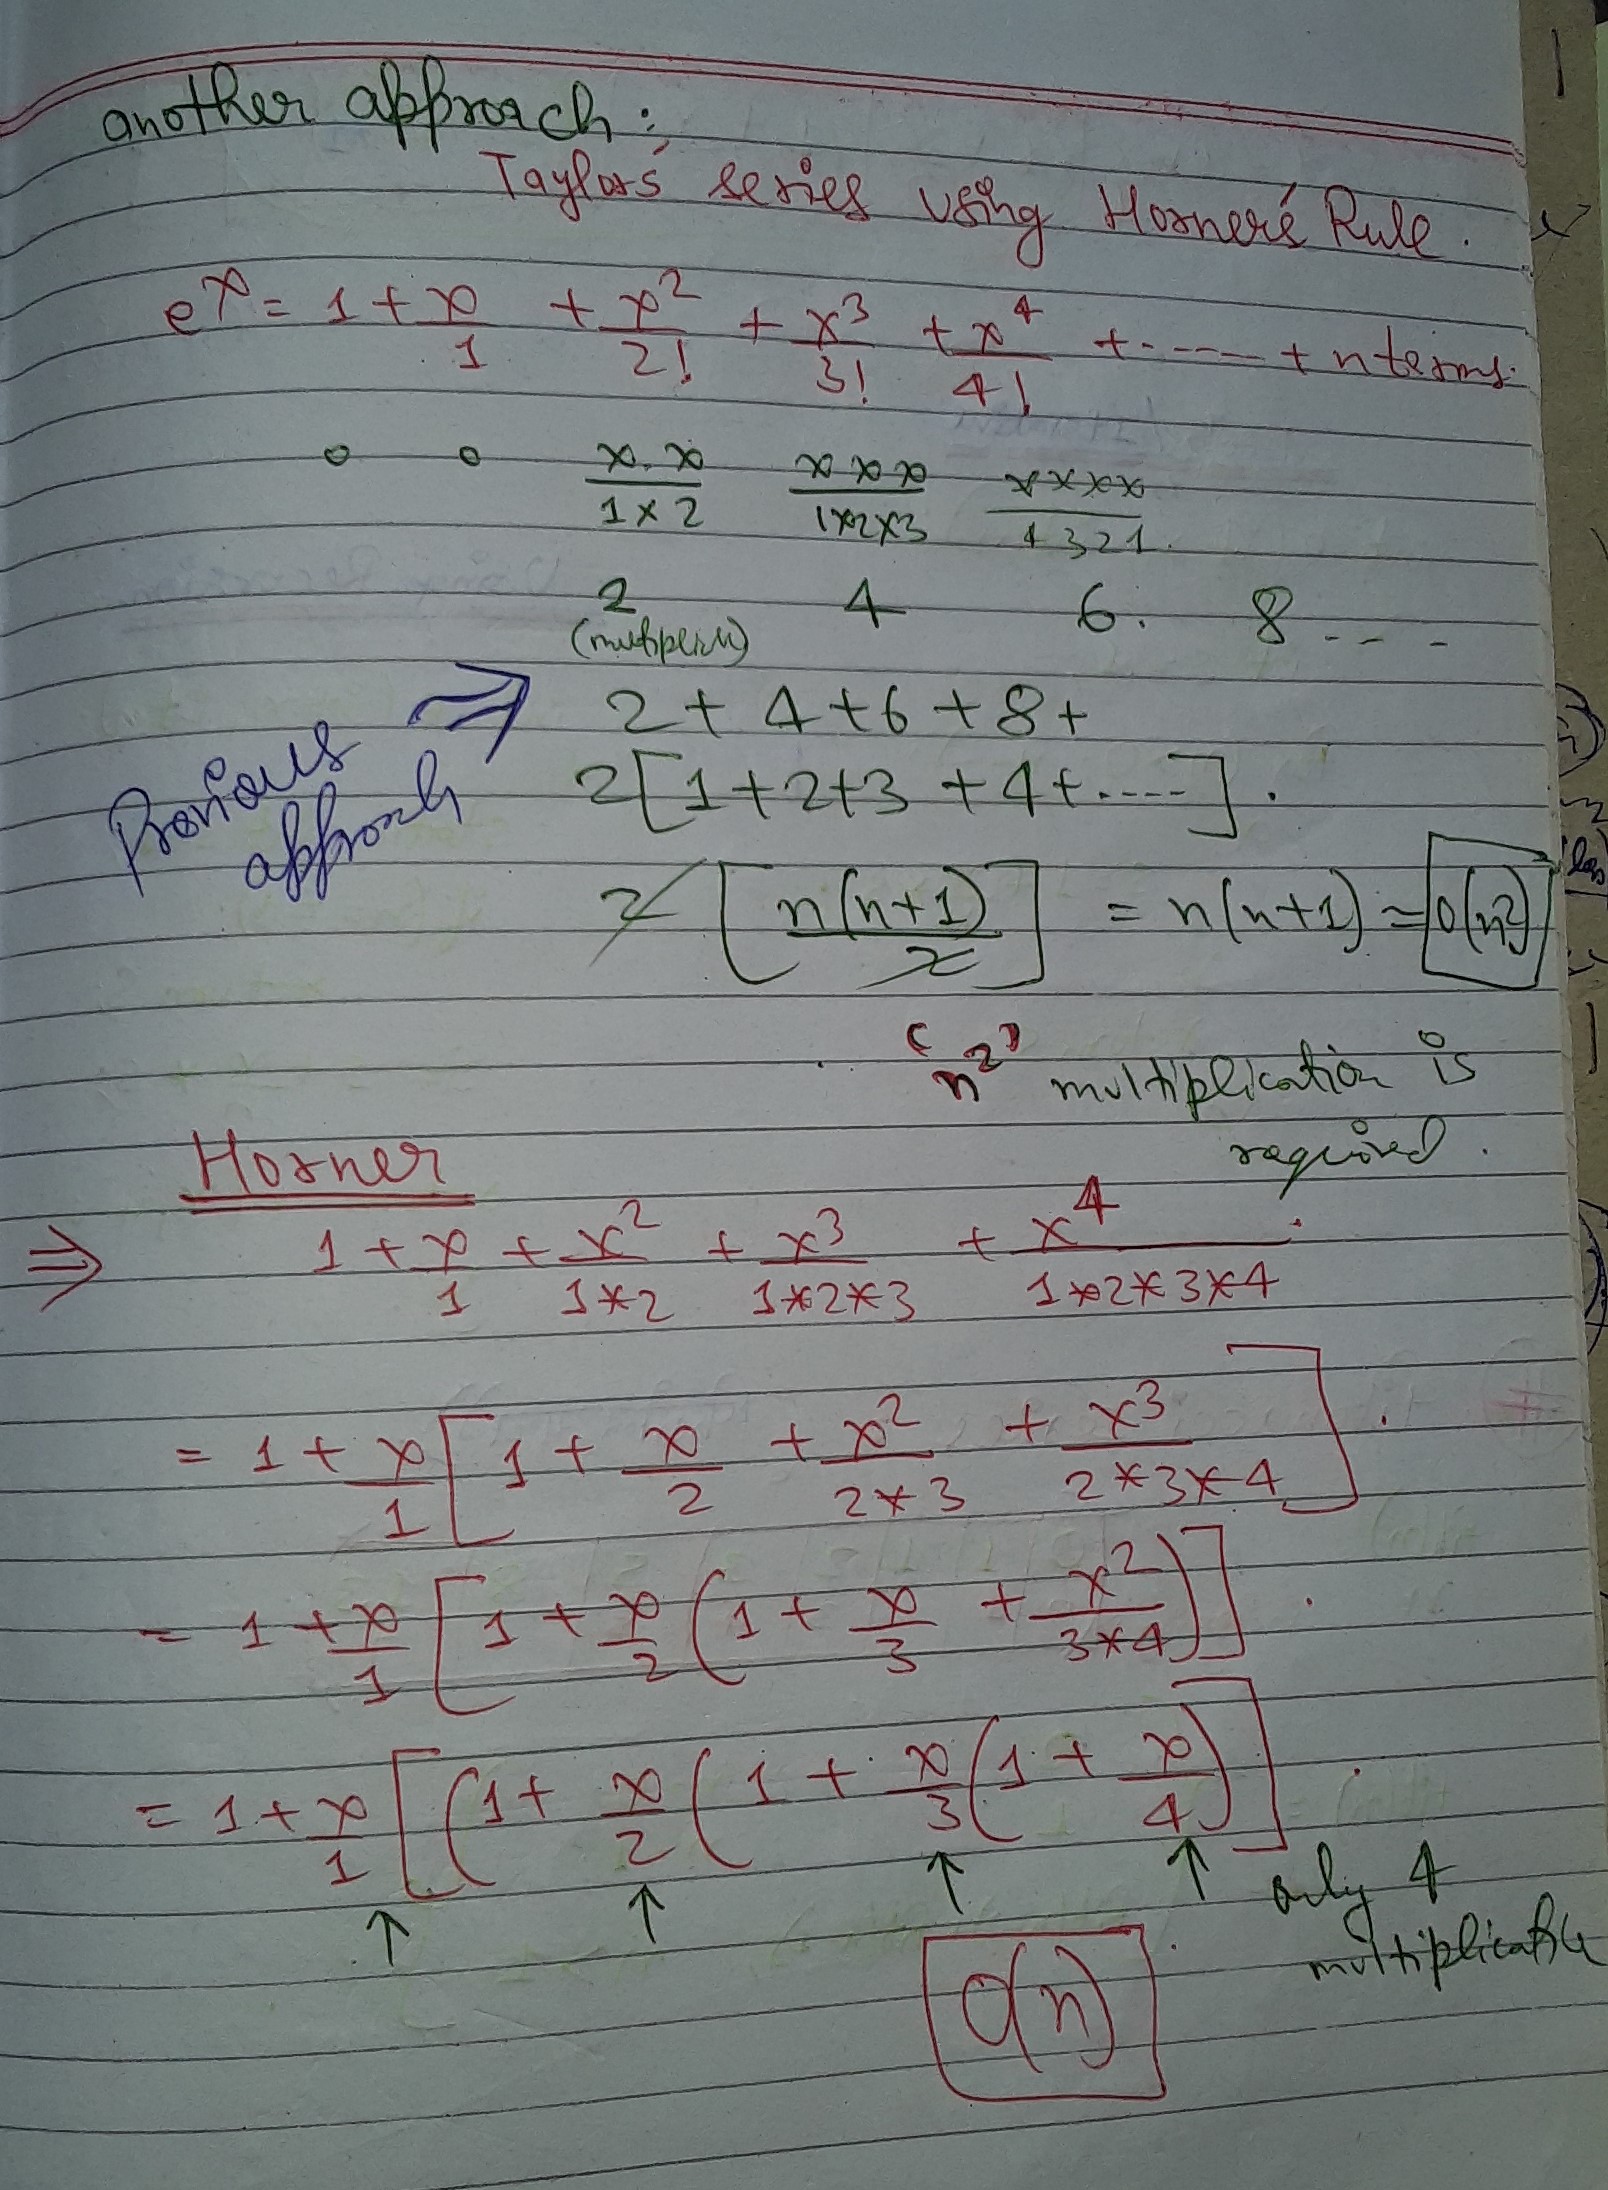 another approach:
Taylor's series using Horner's Rule.
e^x = 1 + x/1 + x^2/2! + x^3/3! + x^4/4! + ..... + n terms.
0 0 x.x/1×2 x x x/1×2×3 x x x x/4 3 2 1.
2 4 6. 8 ....
2 + 4 + 6 + 8 +
Previous approach ⇒
2[1+2+3+4+.....].
2[n(n+1)/2] = n(n+1) = O(n^2)
(n^2) multiplication is
required.
Horner
⇒ 1 + x/1 + x^2/1*2 + x^3/1*2*3 + x^4/1*2*3*4
= 1 + x/1 [1 + x/2 + x^2/2*3 + x^3/2*3*4].
= 1 + x/1 [1 + x/2 (1 + x/3 + x^2/3*4)].
= 1 + x/1 [(1 + x/2 (1 + x/3 (1 + x/4)].
↑ ↑ ↑ ↑ only 4
O(n)